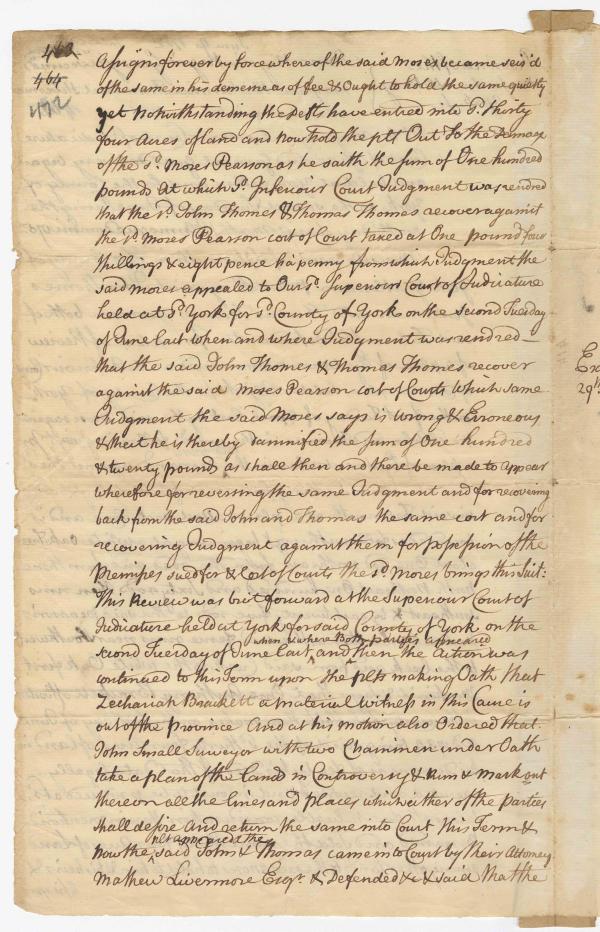 462
464
472
Assigns forever by force whereof the said Moses became seis'd
of the same in his demesne as of fee & Ought to hold the same quietly
yet Notwithstanding the Defts have entred into sd. thirty
four Acres of land and now hold the plt Out to the Damage
of the sd. Moses Pearson as he saith the sum of One hundred
pounds At which sd. Inferiour Court Judgment was rendred
that the sd. John Thomes & Thomas Thomes recover against
the sd. Moses Pearson cost of Court taxed at One pound four
shillings & eight pence ha'penny from which Judgment the
said Moses appealed to Our sd. Superiour Court of Judicature
held at sd. York for sd. County of York on the second Tuesday
of June last when and where Judgment was rendred
that the said John Thomes & Thomas Thomes recover
against the said Moses Pearson cost of Courts which same
Judgment the said Moses says is wrong & Erroneous
& that he is thereby damnified the sum of One hundred
& twenty pounds as shall then and there be made to appear
wherefore for reversing the same Judgment and for recovering
back from the said John and Thomas the same cost and for
recovering Judgment against them for possession of the
Premises sued for & Cost of Courts the sd. Moses brings this Suit:
This Review was bro't forward at the Superiour Court of
Judicature held at York for said County of York on the
when & where Both parties appeared
second Tuesday of June last ^ and then the Action was
continued to this Term upon the plts making Oath that
Zechariah Brackett a material Witness in this Cause is
out of the Province And at his motion also Ordered that
John Small Surveyor with two Chainmen under Oath
take a plan of the Land in Controversy & Run & Mark out
thereon all the lines and places which either of the parties
shall desire And return the same into Court this Term &
plt appeared & the
Now the ^ said John & Thomas came into Court by their Attorney
Mathew Livermore Esqr. & Defended &c & said that the
Ex
29th